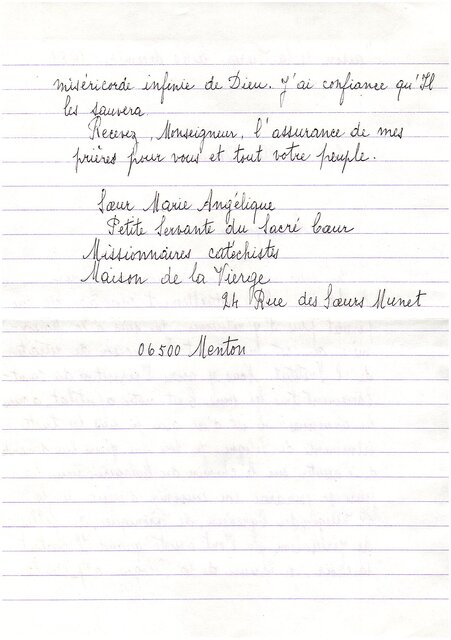 miséricorde infinie de Dieu. J'ai confiance qu'Il
les sauvera
Recevez, Monseigneur, l'assurance de mes
prières pour vous et tout votre peuple.
Sœur Marie Angélique
Petite Servante du Sacré Cœur
Missionnaires catéchistes
Maison de la Vierge
24 Rue des Sœurs Munet
06500 Menton